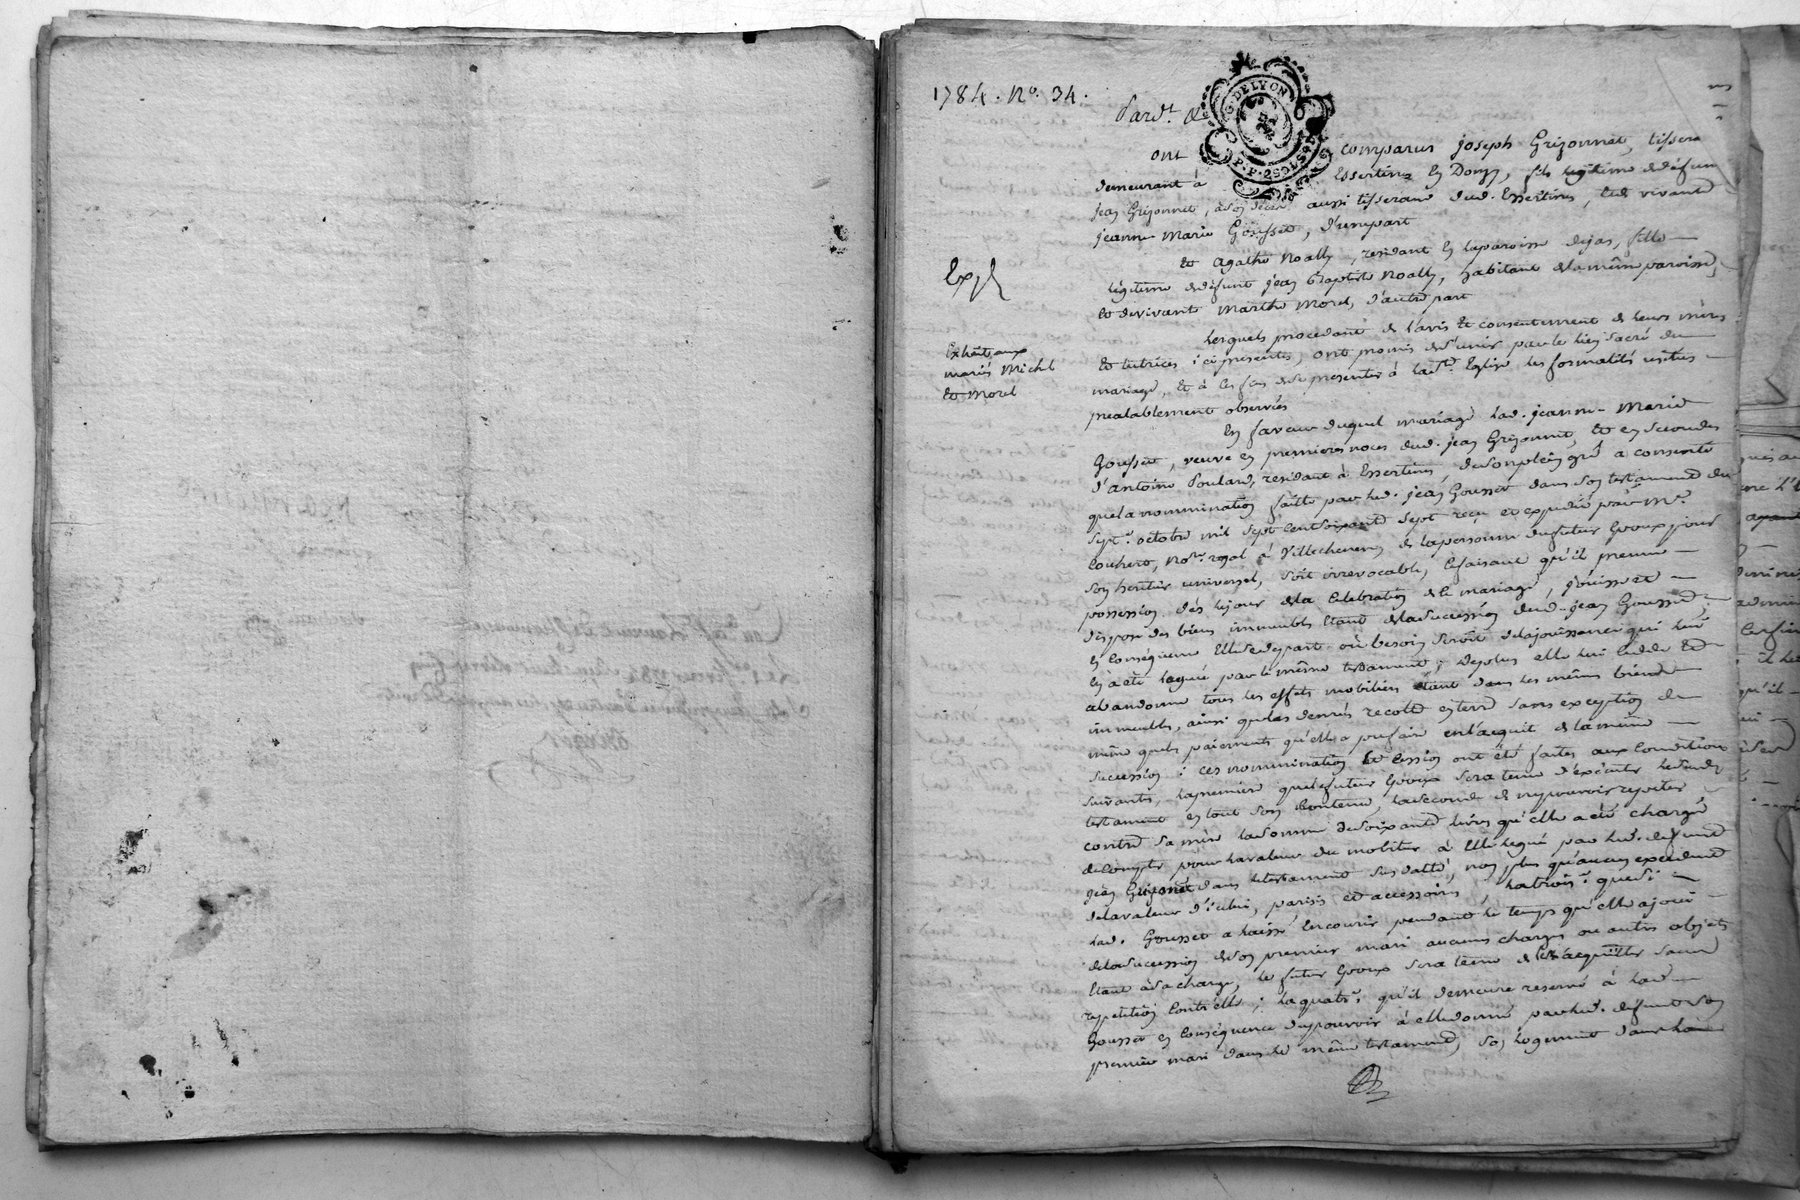 1784. No. 34.
Pard.t &
G. DE LYON
ont comparus joseph Grizonnet, tissera
demeurant à Essertines En Donzy, fils legitime de défunt
jean Grizonnet, à son décès aussi tisserand dud. Essertines, et de vivante
jeanne Marie Gousset, d'une part
Et Agathe Noally, residant En la paroisse de jas, fille
légitime de défunt jean Baptiste Noally, habitant de la même paroisse,
Et de vivante Marthe Morel, d'autre part
Exp
Lesquels procedant de l'avis Et consentement de leurs mères
Extrait aux
mariés Michel
Et Morel
Et tutrices ici presentes, ont promis de s'unir par le lien sacré du
mariage, Et à ces fins de se presenter à la Ste. Eglise les formalités usitées
prealablement observées
En faveur duquel mariage lad. jeanne Marie
Gousset, veuve en premieres noces dud. jean Grizonnet, Et en secondes
d'antoine Poulard, residant à Essertines de son plein gré a consenti
que la nommination faitte par led. jean Gousset dans son testament du
sept octobre mil sept cent soixante sept reçu et expedié par Me.
Nore. royal à Villechenève de la personne du futur Epoux pour
son heritier universel, soit irrevocable, Ce faisant qu'il prenne
possession dès le jour de la Celebration de ce mariage, jouisse et
dispose des biens immeubles Etant de la succession dud. jean Gousset,
En Conséquence Elle se depart où besoin seroit de la jouissance qui lui
En a été leguée par le même testament; de plus elle lui cedde Et
abandonne tous les effets mobiliers étant dans les mêmes biens
immeubles, ainsi que les denrées recolte en terre sans exception de
même que les paiements qu'elle a pu faire en l'acquit de la même
succession; ces nommination Et Cession ont été faites aux Conditions
suivantes, la premiere que le futur Epoux sera tenu d'exécuter led.
testament en tout son Contenu, la seconde de ne pouvoir repeter
contre sa mère la somme de soixante livres qu'elle a été chargée
de Compter pour la valeur du mobilier à Elle legué par led. defunt
jean Grizonnet dans le testament sus datté, non plus qu'aucun excedent
de la valeur d'icelui, parisis et accessoires; la trois.e que si
lad. Gousset a laissé Encourir pendant le temps qu'elle a joui
de la succession de son premier mari aucunes charges ou autres objets
Etant à sa charge, le futur Epoux sera tenu de les acquitter sans
repetition Contr'elle; la quatr.e qu'il demeure reservé à lad.
Gousset en Conséquence du pouvoir à elle donné par led. defunt son
premier mari dans le même testament, son logement dans la